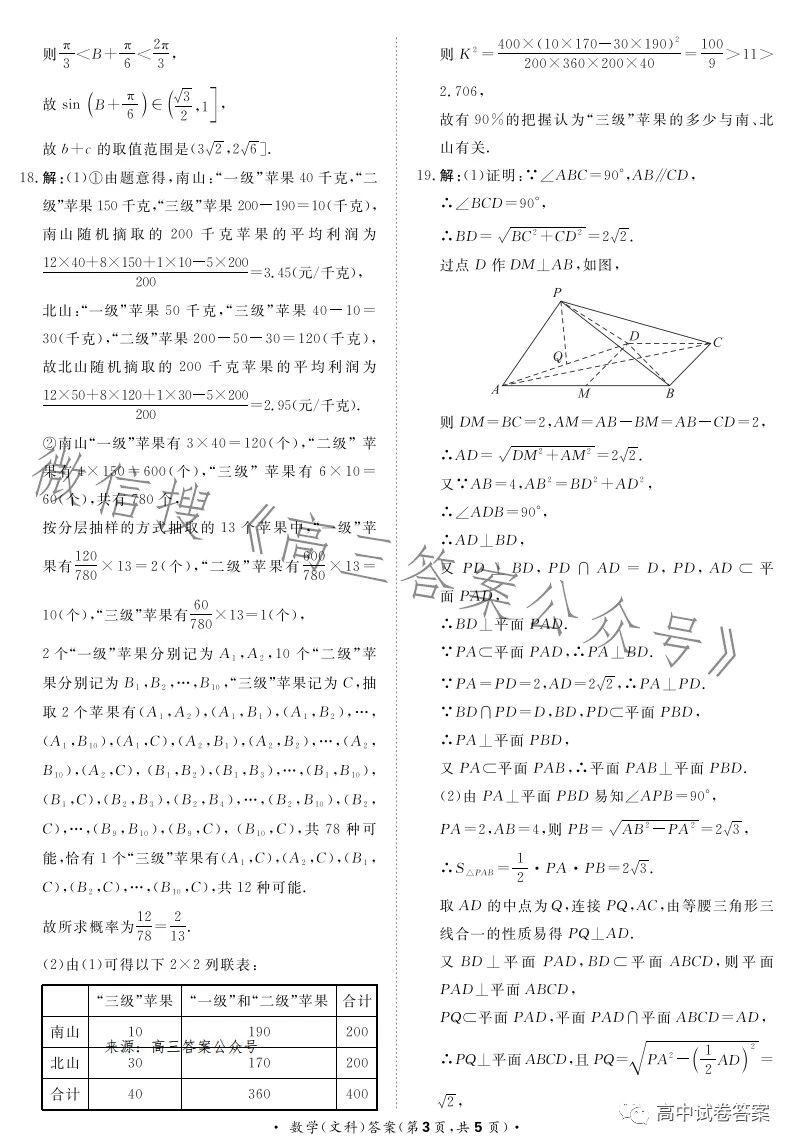 则π/3<B+π/6<2π/3,
故 sin (B+π/6)∈(√3/2,1],
故 b+c 的取值范围是(3√2,2√6].
18.解:(1)①由题意得,南山:“一级”苹果 40 千克,“二
级”苹果 150 千克,“三级”苹果 200－190=10(千克),
南山随机摘取的 200 千克苹果的平均利润为
(12×40+8×150+1×10－5×200)/200=3.45(元/千克),
北山:“一级”苹果 50 千克,“三级”苹果 40－10=
30(千克),“二级”苹果 200－50－30=120(千克),
故北山随机摘取的 200 千克苹果的平均利润为
(12×50+8×120+1×30－5×200)/200=2.95(元/千克).
②南山“一级”苹果有 3×40=120(个),“二级”苹
果有 4×150=600(个),“三级”苹果有 6×10=
60(个),共有 780 个,
按分层抽样的方式抽取的 13 个苹果中,“一级”苹
果有120/780×13=2(个),“二级”苹果有600/780×13=
10(个),“三级”苹果有60/780×13=1(个),
2 个“一级”苹果分别记为 A₁,A₂,10 个“二级”苹
果分别记为 B₁,B₂,…,B₁₀,“三级”苹果记为 C,抽
取 2 个苹果有(A₁,A₂),(A₁,B₁),(A₁,B₂),…,
(A₁,B₁₀),(A₁,C),(A₂,B₁),(A₂,B₂),…,(A₂,
B₁₀),(A₂,C),(B₁,B₂),(B₁,B₃),…,(B₁,B₁₀),
(B₁,C),(B₂,B₃),(B₂,B₄),…,(B₂,B₁₀),(B₂,
C),…,(B₉,B₁₀),(B₉,C),(B₁₀,C),共 78 种可
能,恰有 1 个“三级”苹果有(A₁,C),(A₂,C),(B₁,
C),(B₂,C),…,(B₁₀,C),共 12 种可能.
故所求概率为12/78=2/13.
(2)由(1)可得以下 2×2 列联表:
“三级”苹果 “一级”和“二级”苹果 合计
南山 10 190 200
来源：高三答案公众号
北山 30 170 200
合计 40 360 400
则 K²=400×(10×170－30×190)²/(200×360×200×40)=100/9>11>
2.706,
故有 90%的把握认为“三级”苹果的多少与南、北
山有关.
19.解:(1)证明:∵∠ABC=90°,AB∥CD,
∴∠BCD=90°,
∴BD=√(BC²+CD²)=2√2.
过点 D 作 DM⊥AB,如图,
P
D
C
Q
A
M
B
则 DM=BC=2,AM=AB－BM=AB－CD=2,
∴AD=√(DM²+AM²)=2√2.
又∵AB=4,AB²=BD²+AD²,
∴∠ADB=90°,
∴AD⊥BD,
又 PD⊥BD,PD∩AD=D,PD,AD⊂平
面 PAD,
∴BD⊥平面 PAD.
∵PA⊂平面 PAD,∴PA⊥BD.
∵PA=PD=2,AD=2√2,∴PA⊥PD.
∵BD∩PD=D,BD,PD⊂平面 PBD,
∴PA⊥平面 PBD,
又 PA⊂平面 PAB,∴平面 PAB⊥平面 PBD.
(2)由 PA⊥平面 PBD 易知∠APB=90°,
PA=2,AB=4,则 PB=√(AB²－PA²)=2√3,
∴S△PAB=1/2・PA・PB=2√3.
取 AD 的中点为 Q,连接 PQ,AC,由等腰三角形三
线合一的性质易得 PQ⊥AD.
又 BD⊥平面 PAD,BD⊂平面 ABCD,则平面
PAD⊥平面 ABCD,
PQ⊂平面 PAD,平面 PAD∩平面 ABCD=AD,
∴PQ⊥平面 ABCD,且 PQ=√(PA²－(1/2AD)²)=
√2,
微信搜《高三答案公众号》
高中试卷答案
・数学(文科)答案(第 3 页,共 5 页)・